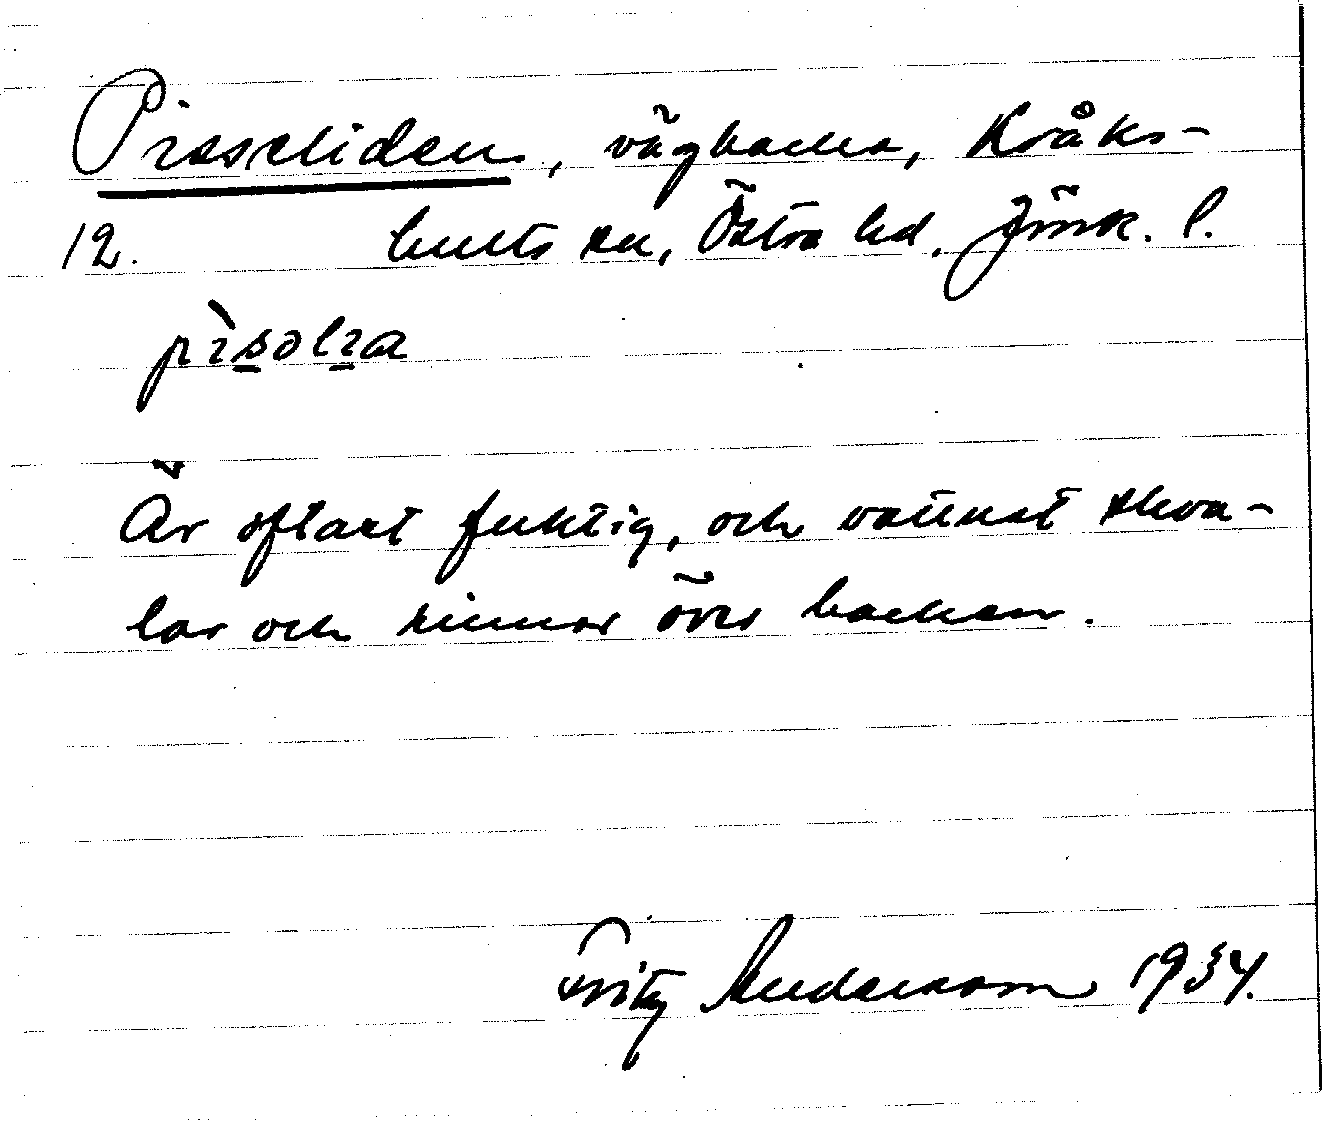 Pisseliden, vägbacke, Kråks-
12. hults sn, Östra hd. Jönk. l.
Är oftast fuktig, och vattnet skva-
lar och rinner över backen.
Fritz Andersson 1934.